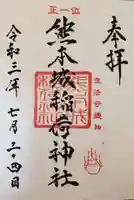 奉拝
生活守護神
正一位
熊本城稲荷神社
令和三年七月二十四日